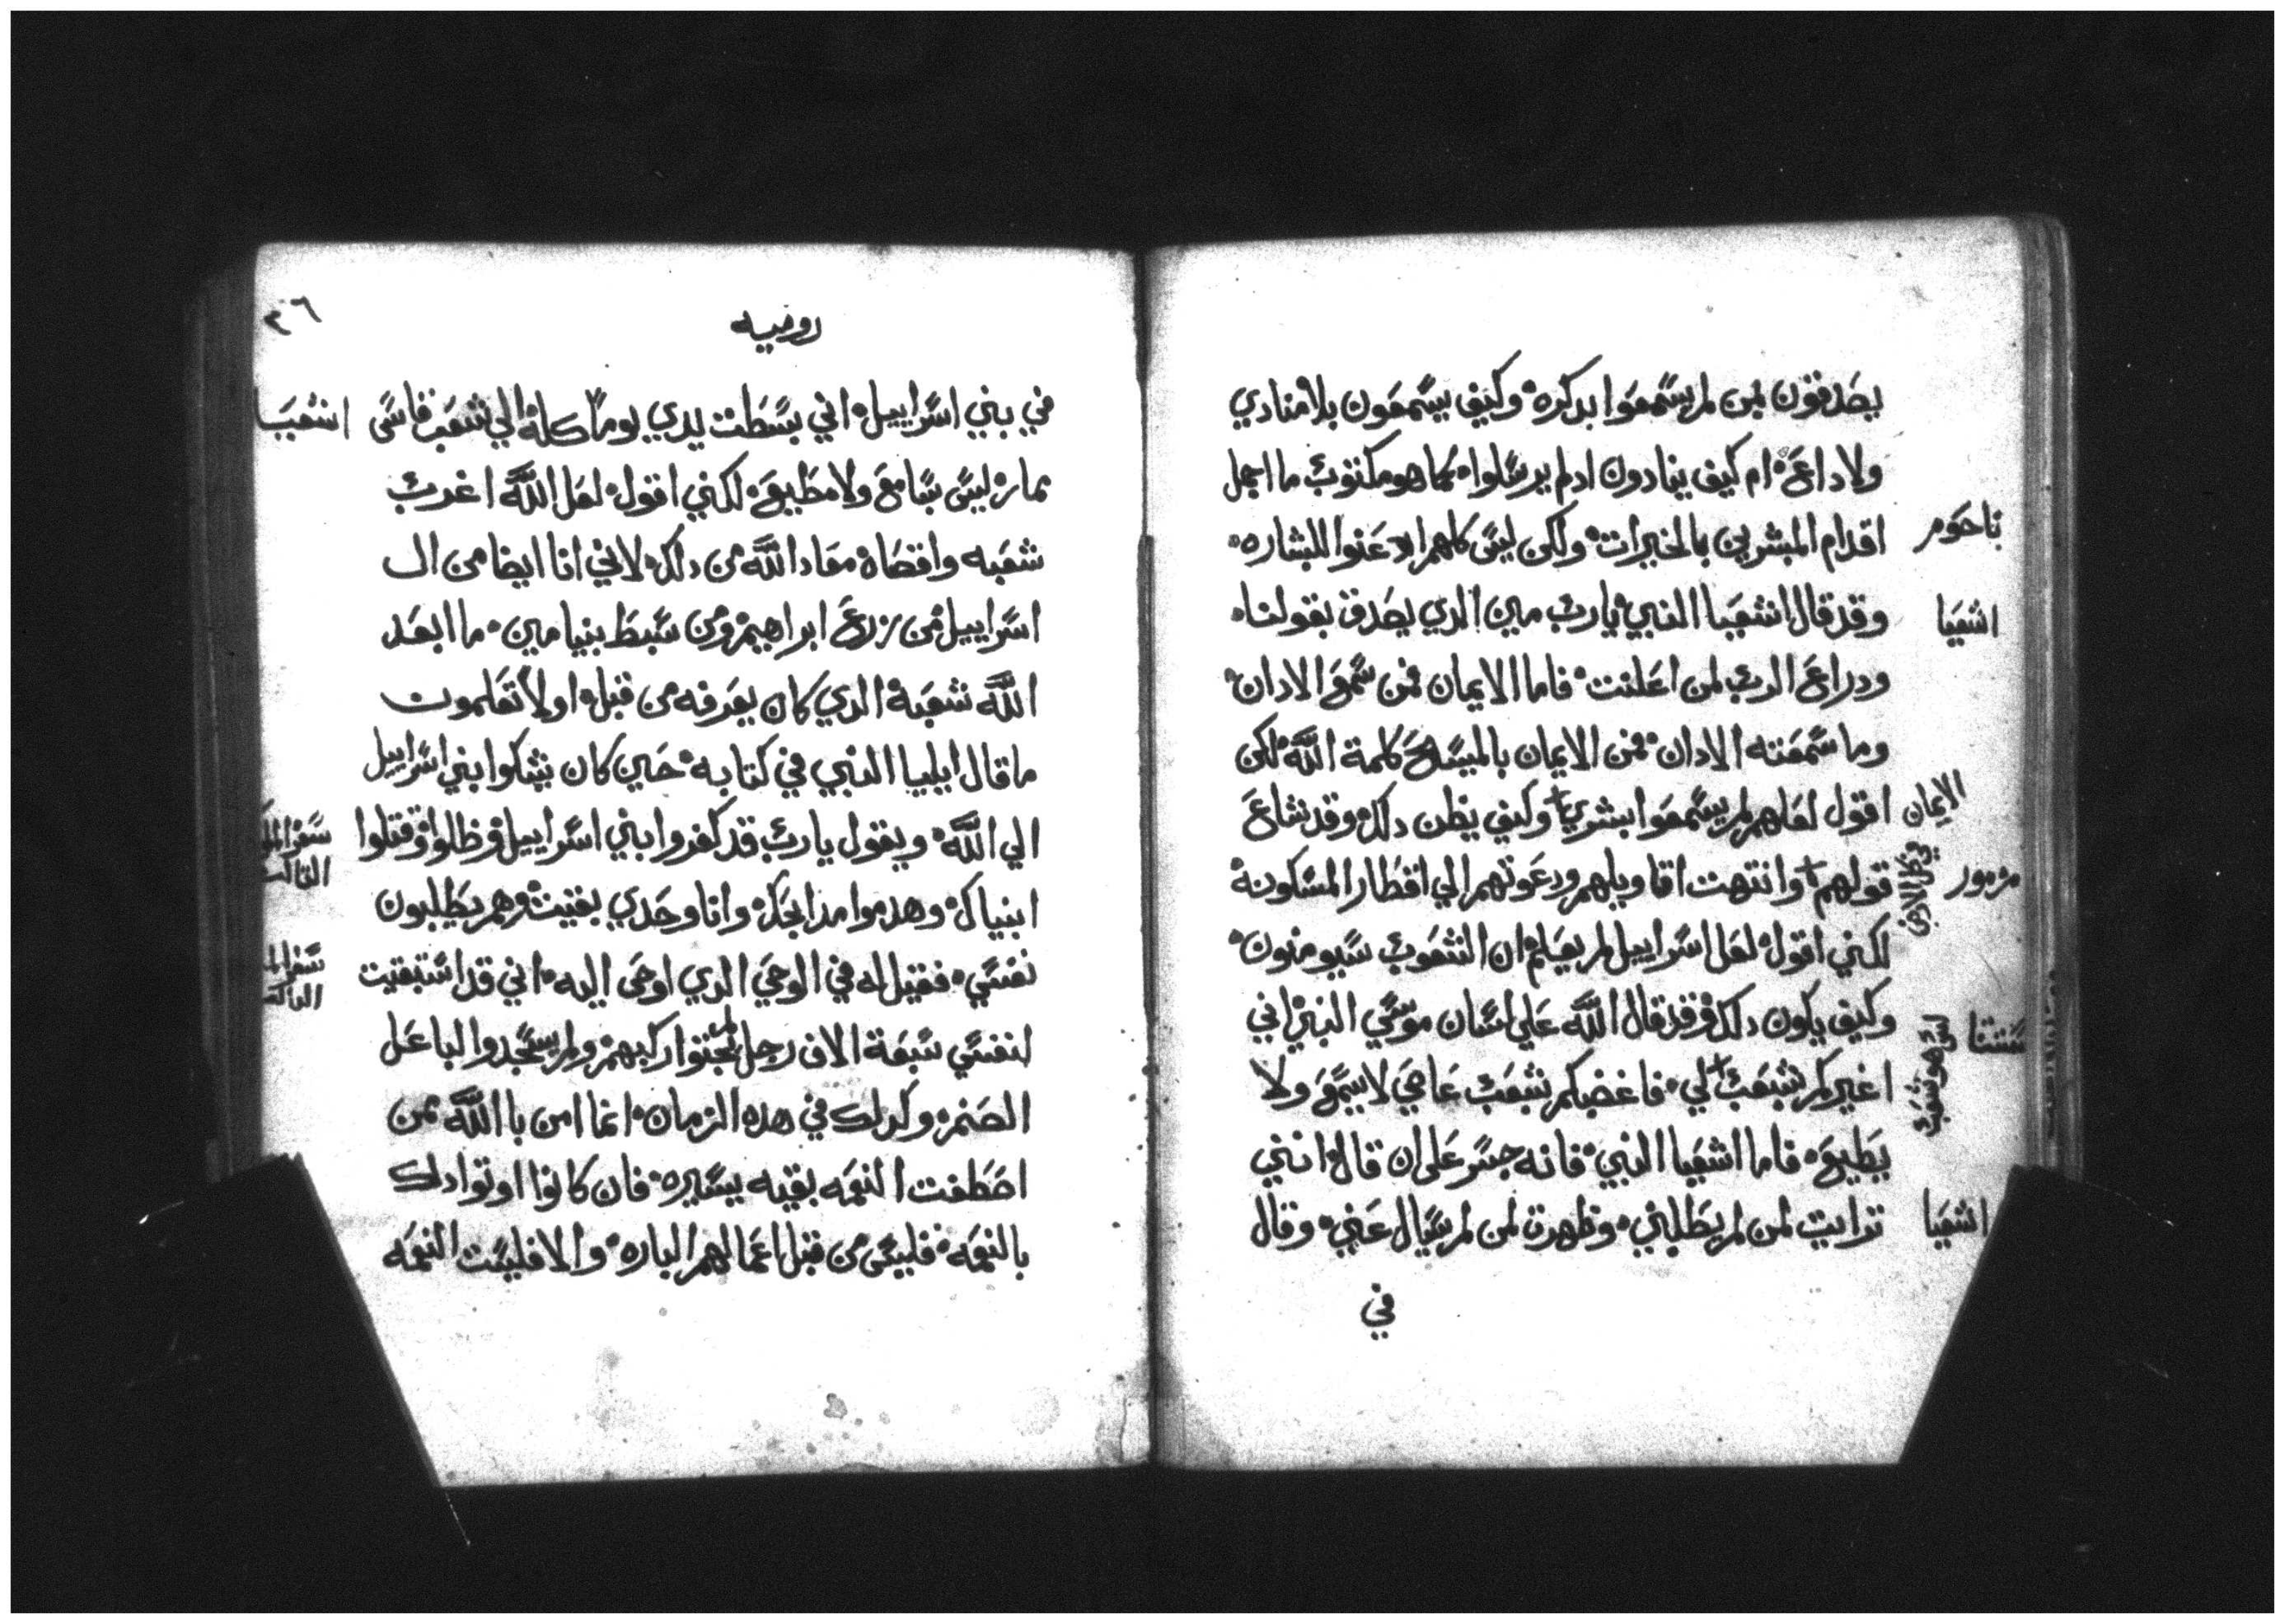 يصدقون بمن لم يسمعوا بدكره وكيف يسمعون بلا منادي
ولا داع ام كيف ينادون ادلم يرسلوا كما هو مكتوب ما اجمل
اقدام المبشرين بالخيرات ولكن ليس كلهم ادعنوا للبشاره
ناحوم
وقد قال اشعيا النبي يارب مين الدي يصدق بقولنا
اشعيا
ودراع الرب لمن اعلنت فاما الايمان فمن سمع الادان
وما سمعته الادان فمن الايمان بالمسيح كلمة الله لكن
اقول لعلهم لم يسمعوا بشري وكيف يظن دلك وقد شاع
الايمان
قولهم وانتهت اقاويلهم ودعوتهم الي اقطار المسكونة
في كل الارض
مزمور
لكني اقول لعل اسراييل لم يعلم ان الشعوب سيومنون
وكيف ياكون دلك فقد قال الله علي لسان موسي النبي اني
اغيركم بشعب لي فاغضبكم بشعب عاصي لا يسمع ولا
ليس هو شعب
يطيع فاما اشعيا النبي فانه جسر علي ان قال انني
ترايت لمن لم يطلبني وظهرت لمن لم يسال عني وقال
اشعيا
في
٣٦
رومية
في بني اسراييل اني بسطت يدي يوما كله الي شعب قاسي
اشعيا
مار ليس بسامع ولا مطيع لكني اقول لعل الله اغرب
شعبه واقصاه معاد الله من دلك لاني انا ايضا من ال
اسراييل من زرع ابراهيم ومن سبط بنيامين ما ابعد
الله شعبة الدي كان يعرفه من قبل اولا تعلمون
ما قال ايليا النبي في كتابه حين كان يشكوا بني اسراييل
الي الله ويقول يارب قد كفروا بني اسراييل وظلوا وقتلوا
سفر الملو
الثالث
انبياك وهدموا مدابحك وانا وحدي بقيت وهم يطلبون
نفسي فقيل له في الوحي الدي اوحي اليه اني قد استبقيت
سفر
الثالث
لنفسي سبعة الاف رجل لم يجتوا ركبهم ولم يسجدوا لباعل
الصنم وكدلك في هده الزمان انما امن باالله من
اصطفت النعمه بقيه يسيره فان كانوا اوتوا دلك
بالنعمه فليس من قبل اعمالهم الباره والا فليست النعمه